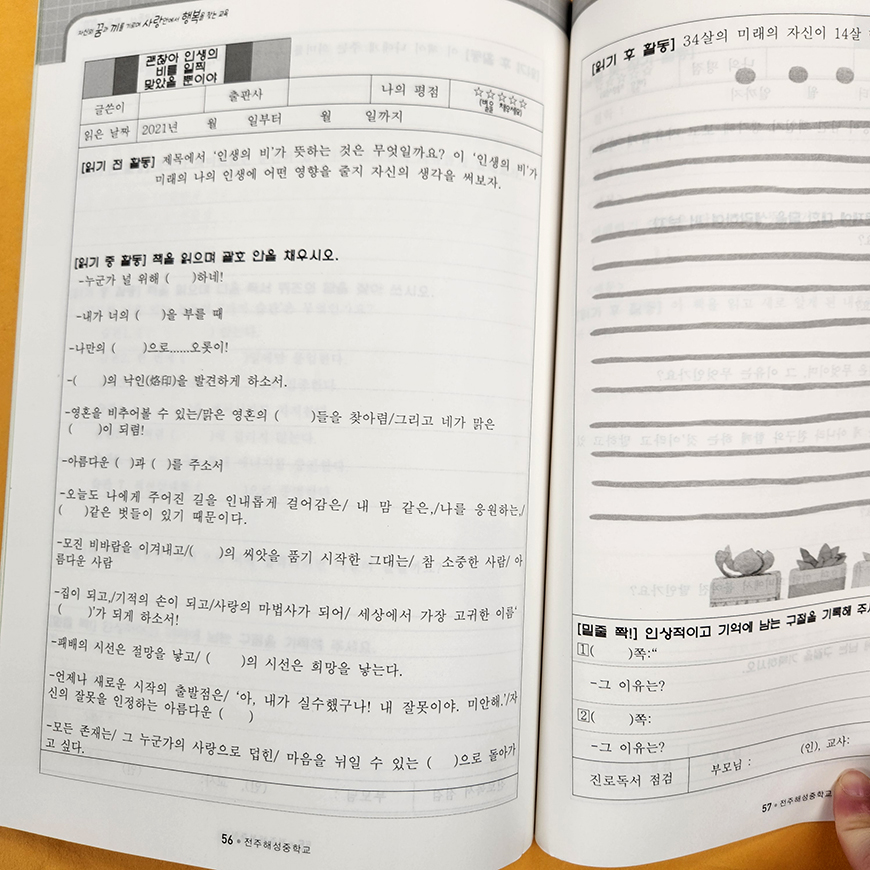 자신의 꿈과 끼를 키우며 사랑안에서 행복을 찾는 교육
괜찮아 인생의
비를 일찍
맞았을 뿐이야
글쓴이 출판사 나의 평점 ☆☆☆☆☆
읽은 날짜 2021년 월 일부터 월 일까지
[읽기 전 활동] 제목에서 '인생의 비'가 뜻하는 것은 무엇일까요? 이 '인생의 비'가
미래의 나의 인생에 어떤 영향을 줄지 자신의 생각을 써보자.
[읽기 중 활동] 책을 읽으며 괄호 안을 채우시오.
-누군가 널 위해 ( )하네!
-내가 너의 ( )을 부를 때
-나만의 ( )으로......오롯이!
-( )의 낙인(烙印)을 발견하게 하소서.
-영혼을 비추어볼 수 있는/맑은 영혼의 ( )들을 찾아렴/그리고 네가 맑은
( )이 되렴!
-아름다운 ( )과 ( )를 주소서
-오늘도 나에게 주어진 길을 인내롭게 걸어감은/ 내 맘 같은,/나를 응원하는,/
( )같은 벗들이 있기 때문이다.
-모진 비바람을 이겨내고/( )의 씨앗을 품기 시작한 그대는/ 참 소중한 사람/ 아
름다운 사람
-집이 되고,/기적의 손이 되고/사랑의 마법사가 되어/ 세상에서 가장 고귀한 이름'
( )'가 되게 하소서!
-패배의 시선은 절망을 낳고/ ( )의 시선은 희망을 낳는다.
-언제나 새로운 시작의 출발점은/ '아, 내가 실수했구나! 내 잘못이야. 미안해.'/자
신의 잘못을 인정하는 아름다운 ( )
-모든 존재는/ 그 누군가의 사랑으로 덥힌/ 마음을 뉘일 수 있는 ( )으로 돌아가
고 싶다.
56 • 전주해성중학교
[읽기 후 활동] 34살의 미래의 자신이 14살
[밑줄 쫙!] 인상적이고 기억에 남는 구절을 기록해 주
1( )쪽:"
-그 이유는?
2( )쪽:
-그 이유는?
진로독서 점검 부모님 : (인), 교사:
57 • 전주해성중학교